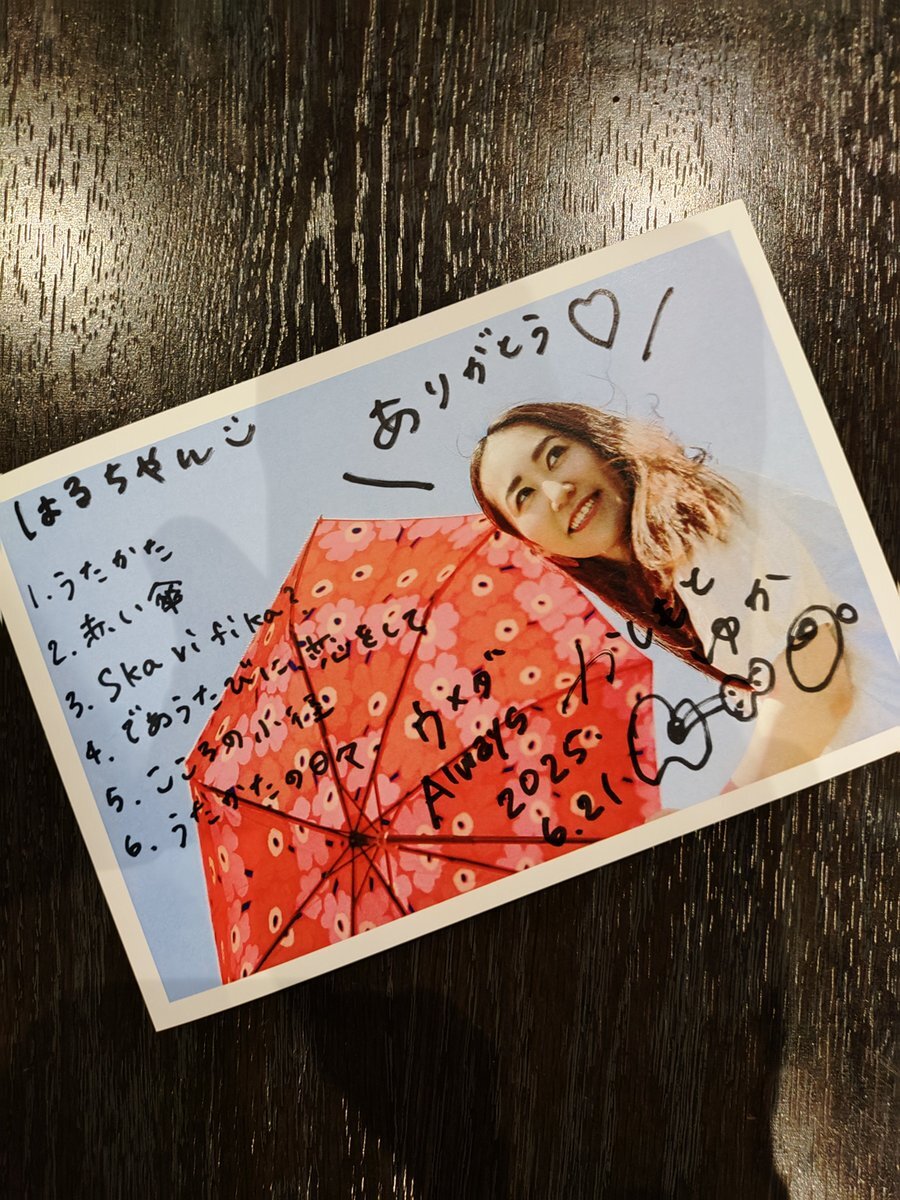 ありがとう♡
はるちゃん
1. うたかた
2. 赤い傘
3. Ska vi fika?
4. であうたびに恋をして
5. こころの小径
6. うたかたの日々
ウメダ
Always
2025.
6.21
かしもと
ゆか